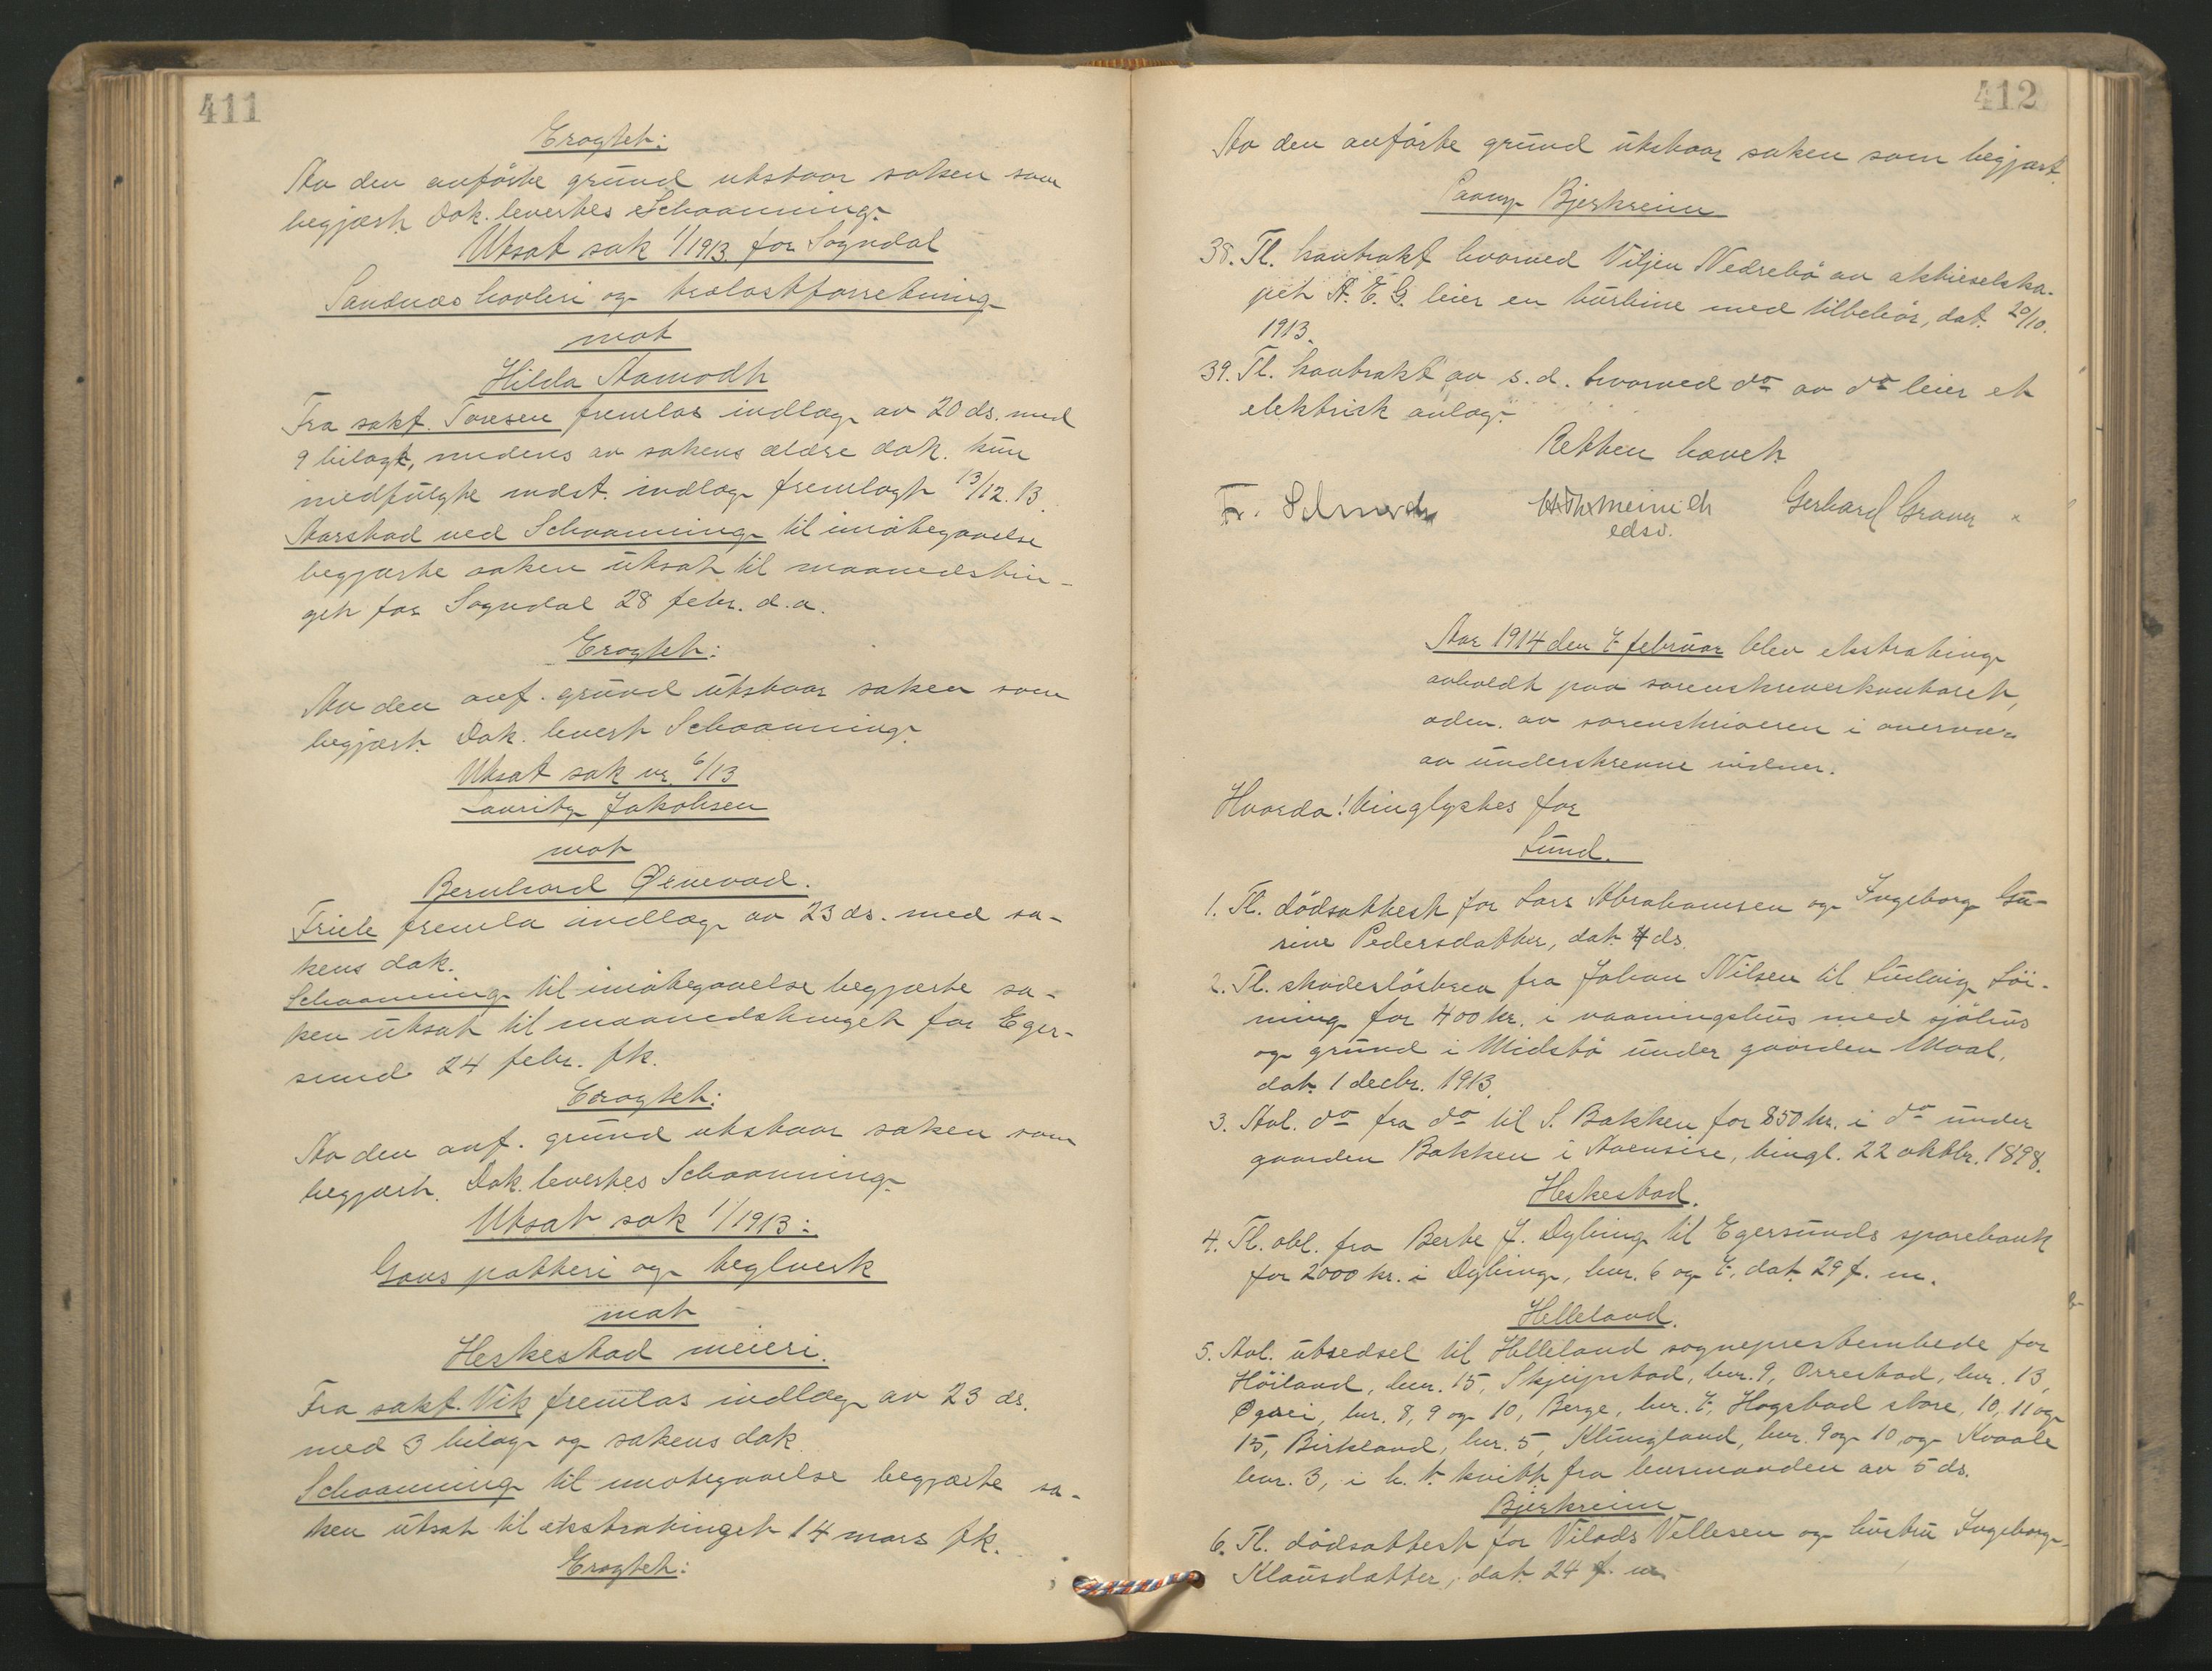 411
Eragtet:
Av den anførte grund utstaar saken som
begjært. Dok. levertes Schaanning.
Utsat sak 1/1913 for Sogndal
Sandnes høvleri og trælastforretning
mot
Hilda Aamodt
Fra sakf. Toresen fremlas indlæg av 20 ds. med
9 bilag, medens av sakens ældre dok. kun
medfulgte indst. indlæg fremlagt 13/12.13.
Aarstad ved Schaanning til imøtegaaelse
begjærte saken utsat til maanedstin-
get for Sogndal 28 febr. d.a.
Eragtet:
Av den anf. grund utstaar saken som
begjært. Dok. levert Schaanning.
Utsat sak nr. 6/13
Lauritz Jakobsen
mot
Bernhard Ørnevad.
Friele fremla indlæg av 23 ds. med sa-
kens dok.
Schaanning til imøtegaaelse begjærte sa-
ken utsat til maanedstinget for Eger-
sund 24 febr. fk.
Eragtet:
Av den anf. grund utstaar saken som
begjært. Dok. levertes Schaanning.
Utsat sak 1/1913:
Gans potteri og teglverk
mot
Heskestad meieri.
Fra sakf. Vik fremlas indlæg av 23 ds.
med 3 bilag og sakens dok.
Schaanning til imøtegaaelse begjærte sa-
ken utsat til ekstratinget 14 mars fk.
Eragtet:
412
Av den anførte grund utstaar saken som begjært.
Paany Bjerkreim
38. Tl. kontrakt hvorved Viljen Nedrebø av aktieselska-
pet A. E. G. leier en turbine med tilbehør, dat. 20/10.
1913.
39. Tl. kontrakt av s.d. hvorved do av do leier et
elektrisk anlæg.
Retten hævet.
Fr. Gerhard Graver
edsv.
Aar 1914 den 7 februar blev ekstrating
avholdt paa sorenskriverkontoret,
adm. av sorenskriveren i overvær
av underskrevne vidner.
Hvorda! tinglystes for
Lund.
1. Tl. dødsattest for Lars Abrahamsen og Ingeborg Gu-
rine Pedersdatter, dat. 4 ds.
2. Tl. skadesløsbrev fra Johan Nilsen til Ludvig Löi-
ning for 400 kr. i vaaningshus med sjøhus
og grund i Midstø under gaarden Moal,
dat. 1 decbr. 1913.
3. Avl. do fra do til S. Bakken for 850 kr. i do under
gaarden Bakken i Aaensire, tingl. 22 oktbr. 1898.
Heskestad.
4. Tl. obl. fra Berte J. Dybing til Egersunds sparebank
for 2000 kr. i Dybing, bnr. 6 og 7, dat. 29 f. m.
Helleland.
5. Avl. utsedsel til Helleland sogneprestembede for
Höiland, bnr. 15, Skjerpstad, bnr. 9, Orrestad, bnr. 13,
Øgrei, bnr. 8, 9 og 10, Berge, bnr. 7, Hogstad store, 10, 11 og
15, Birkeland, bnr. 5, Klungland, bnr. 9 og 10 og Kvaale
bnr. 3, i h. t. kvitt. fra lensmanden av 5 ds.
Bjerkreim
6. Tl. dødsattest for Vilads Vellesen og hustru Ingeborg
Klausdatter, dat. 24 f. m.